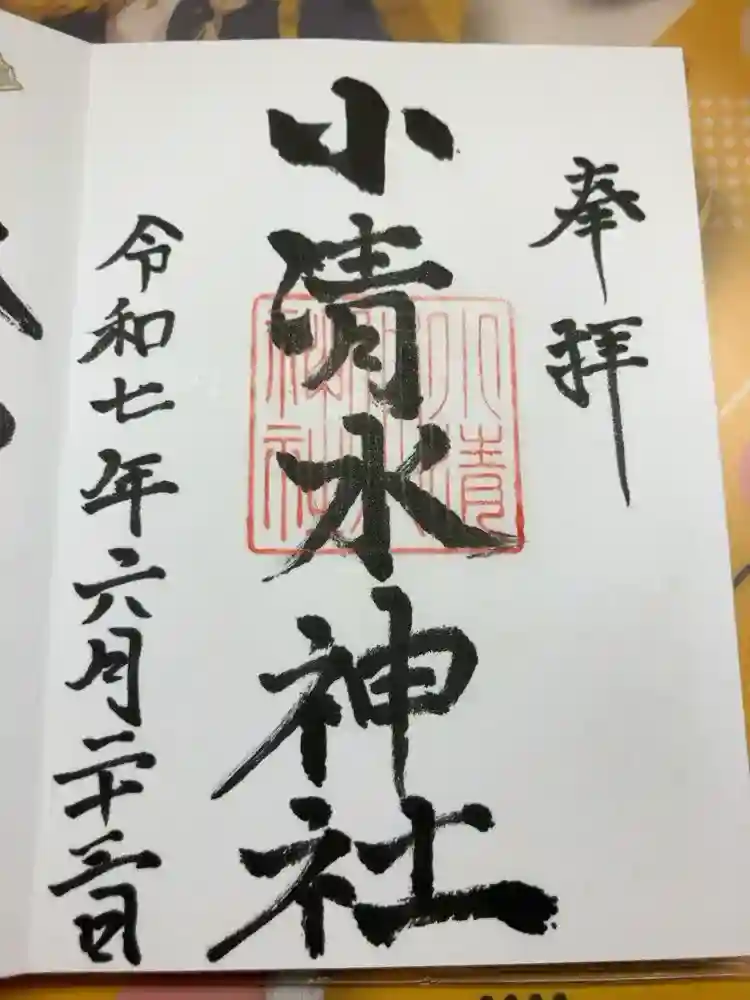 奉拝
小清水神社
小清水神社
令和七年六月二十三日